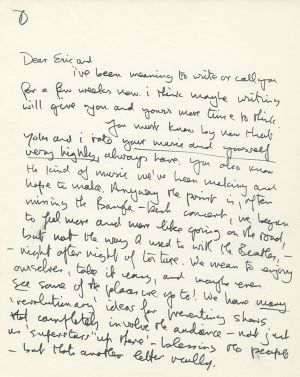 Dear Eric and
i've been meaning to write or call you
for a few weeks now. i think maybe writing
will give you and yours more time to think.
You must know by now that
Yoko and i rate your music and yourself
very highly, always have. You also know
the kind of music we've been making and
hope to make. Anyway the point is, after
missing the Bangla-Desh concert, we began
to feel more and more like going on the road,
but not the way I used to with the Beatles, -
- night after night of torture. We mean to enjoy
ourselves, take it easy, and maybe even
see some of the places we go to! We have many
'revolutionary' ideas for presenting shows
that completely involve the audience - not just
us 'superstars' up there - blessing the people
- but that's another letter really.